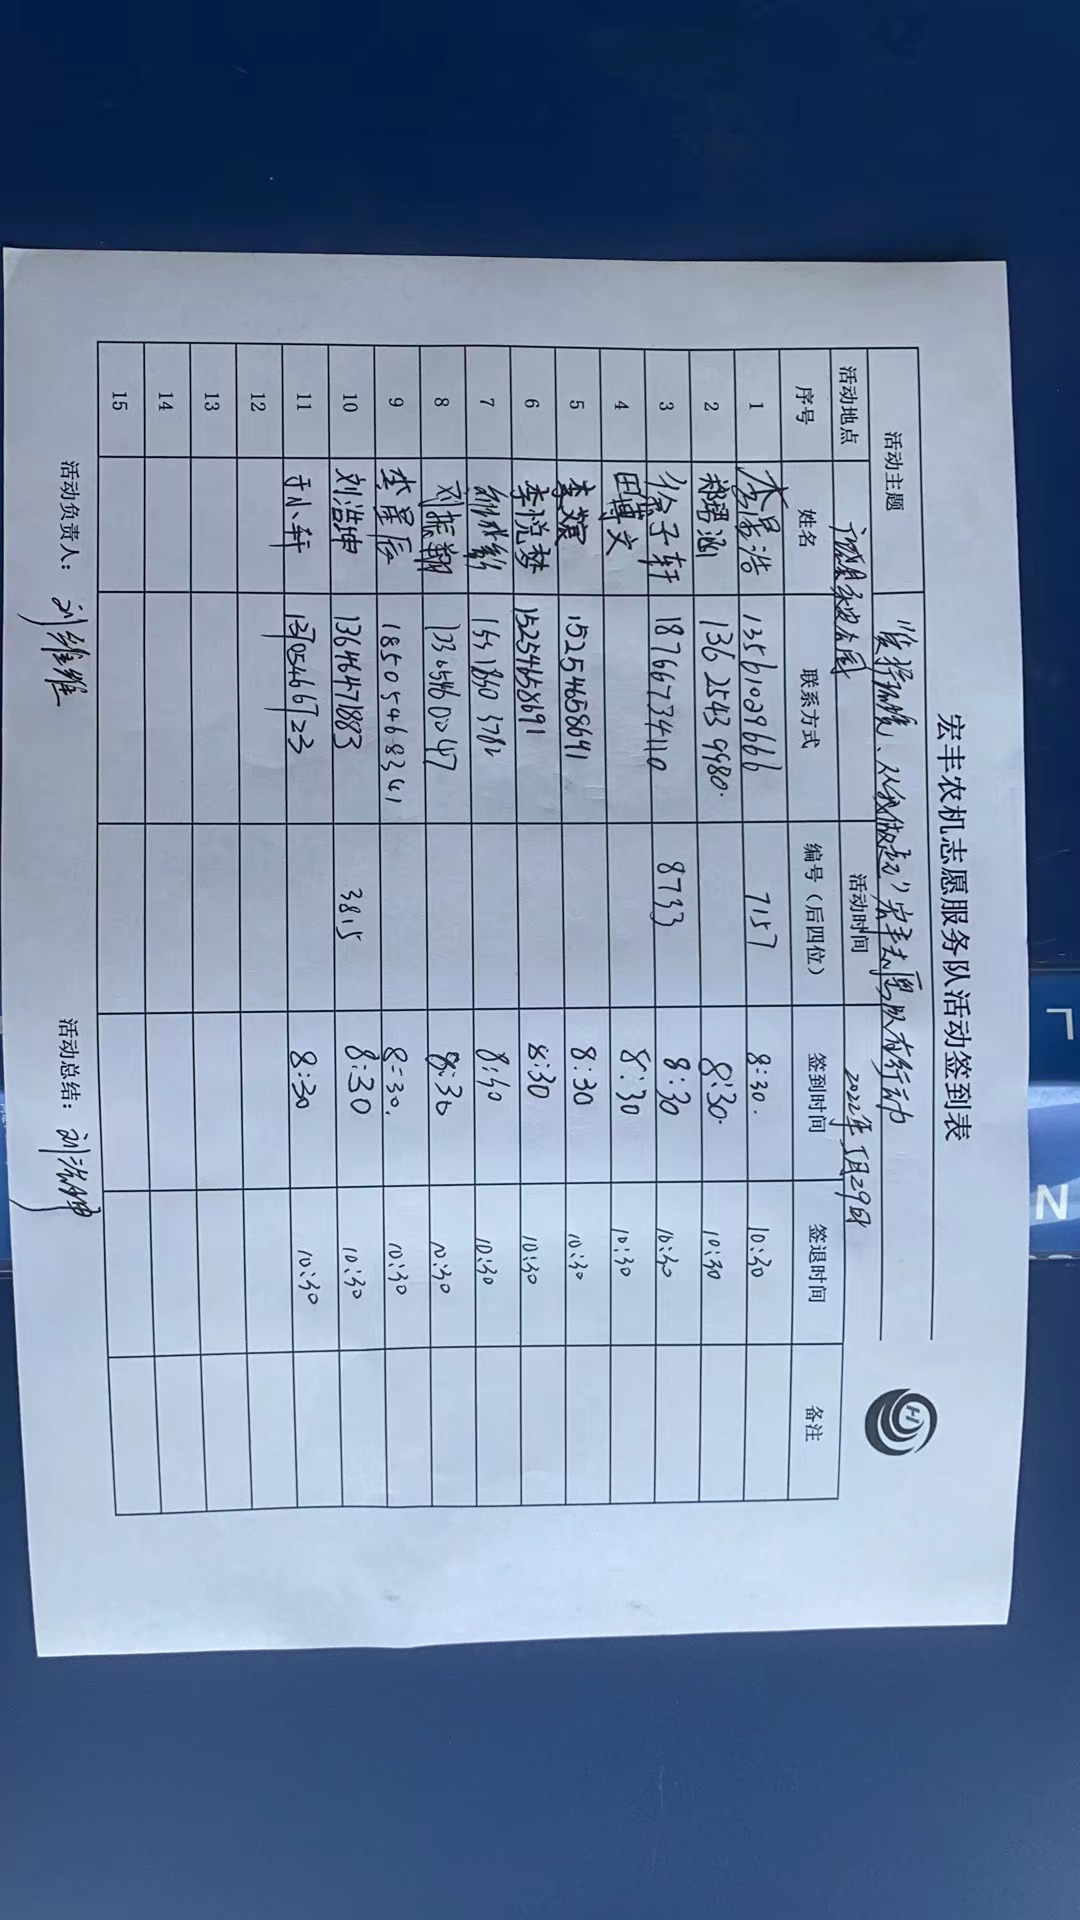 宏丰农机志愿服务队活动签到表
活动主题 "爱护环境、从我做起"宏丰志愿队在行动
活动地点 活动时间 2022年5月29日
序号 姓名 联系方式 编号（后四位） 签到时间 签退时间 备注
1 李昊浩 13561029666 7157 8:30. 10:30
2 136 2543 9980. 8:30. 10:30
3 徐子轩 18766734110 8733 8:30 10:30
4 田博文 8:30 10:30
5 李煊 15254658691 8:30 10:30
6 李悦梦 15254658691 8:30 10:30
7 8:30 10:30
8 刘振翔 8:30 10:30
9 李星辰 18505468341 8:30. 10:30
10 刘浩坤 13646471883 3815 8:30 10:30
11 于小轩 13705466723 8:30 10:30
12
13
14
15
活动负责人： 刘维维 活动总结： 刘浩坤
L
N